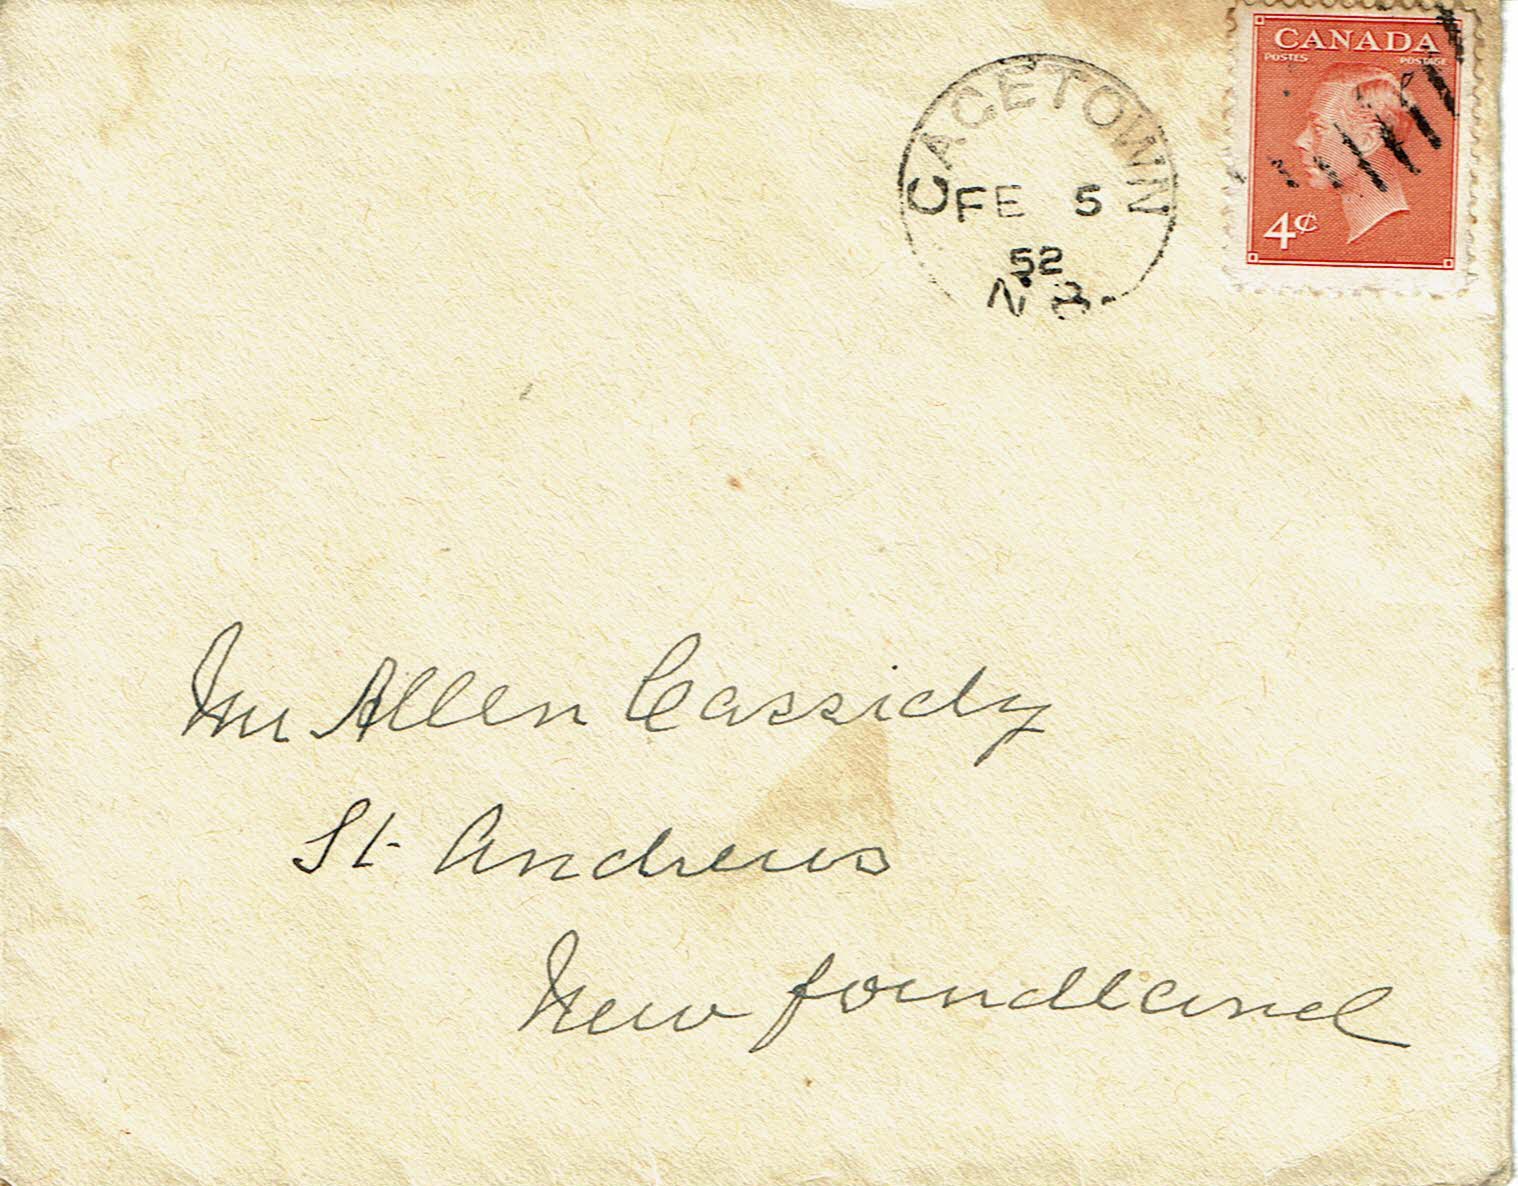 CAGETOWN
FE 5
52
N B
CANADA
POSTES POSTAGE
4¢
Mr Allen Cassidy
St. Andrews
New foundland